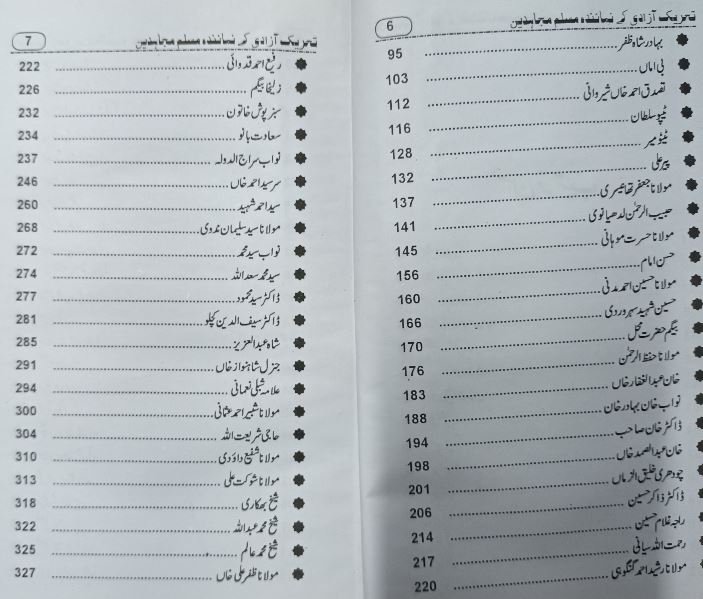 تحریک آزادی کے نمائندہ مسلم مجاہدین 6
بہادر شاہ ظفر 95
بی اماں 103
تصدق احمد خاں شیروانی 112
ٹیپو سلطان 116
ٹیٹو میر 128
پیر علی 132
مولانا جعفر تھانیسری 137
حبیب الرحمٰن لدھیانوی 141
مولانا حسرت موہانی 145
حسن امام 156
مولانا حسین احمد مدنی 160
حسین شہید سہروردی 166
بیگم حضرت محل 170
مولانا حفظ الرحمٰن 176
خان عبدالغفار خاں 183
نواب خان بہادر خان 188
ڈاکٹر خان صاحب 194
خان عبدالصمد خاں 198
چودھری خلیق الزماں 201
ڈاکٹر ذاکر حسین 206
راجہ غلام حسین 214
رحمت اللہ سیانی 217
مولانا رشید احمد گنگوہی 220
تحریک آزادی کے نمائندہ مسلم مجاہدین 7
رفیع احمد قدوائی 222
زلیخا بیگم 226
سبز پوش خاتون 232
سعادت بانو 234
نواب سراج الدولہ 237
سر سید احمد خاں 246
سید احمد شہید 260
مولانا سید سلیمان ندوی 268
نواب سید محمد 272
سید محمد سعد اللہ 274
ڈاکٹر سید محمود 277
ڈاکٹر سیف الدین کچلو 281
شاہ عبدالعزیز 285
جنرل شاہنواز خاں 291
علامہ شبلی نعمانی 294
مولانا شبیر احمد عثمانی 300
حاجی شریعت اللہ 304
مولانا شفیع داؤدی 310
مولانا شوکت علی 313
شیخ بھکاری 318
شیخ محمد عبداللہ 322
شیخ محمد عالم 325
مولانا ظفر علی خاں 327